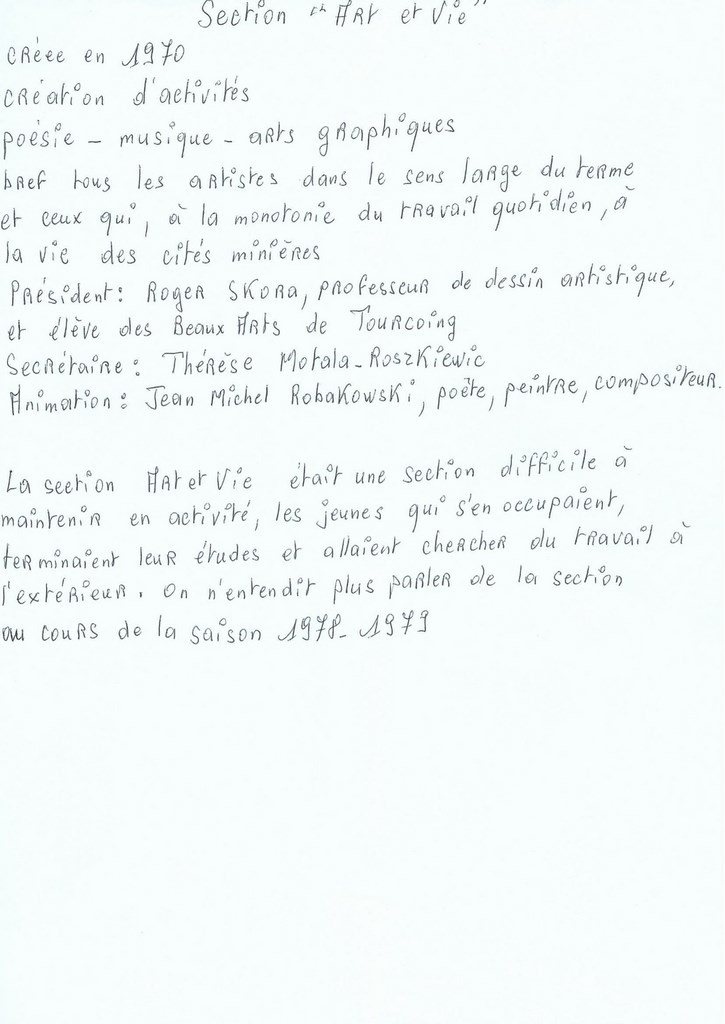 Section "Art et Vie"
créee en 1970
création d'activités
poésie - musique - arts graphiques
bref tous les artistes dans le sens large du terme
et ceux qui, à la monotonie du travail quotidien, à
la vie des cités minières
Président: Roger SKORA, professeur de dessin artistique,
et élève des Beaux Arts de Tourcoing
Secrétaire: Thérèse Motala-Roszkiewic
Animation: Jean Michel Robakowski, poète, peintre, compositeur.
La section Art et Vie était une section difficile à
maintenir en activité, les jeunes qui s'en occupaient,
terminaient leur études et allaient chercher du travail à
l'extérieur. On n'entendit plus parler de la section
au cours de la saison 1978-1979